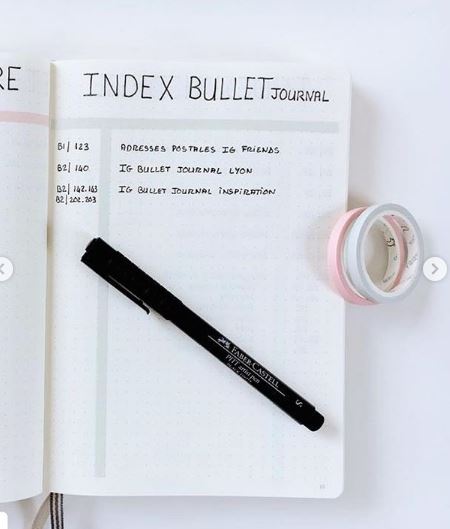 RE
INDEX BULLET JOURNAL
B1 | 123 ADRESSES POSTALES IG FRIENDS
B2 | 140 IG BULLET JOURNAL LYON
B2 | 142.163 IG BULLET JOURNAL INSPIRATION
B2 | 202.203
FABER-CASTELL
PITT artist pen
S